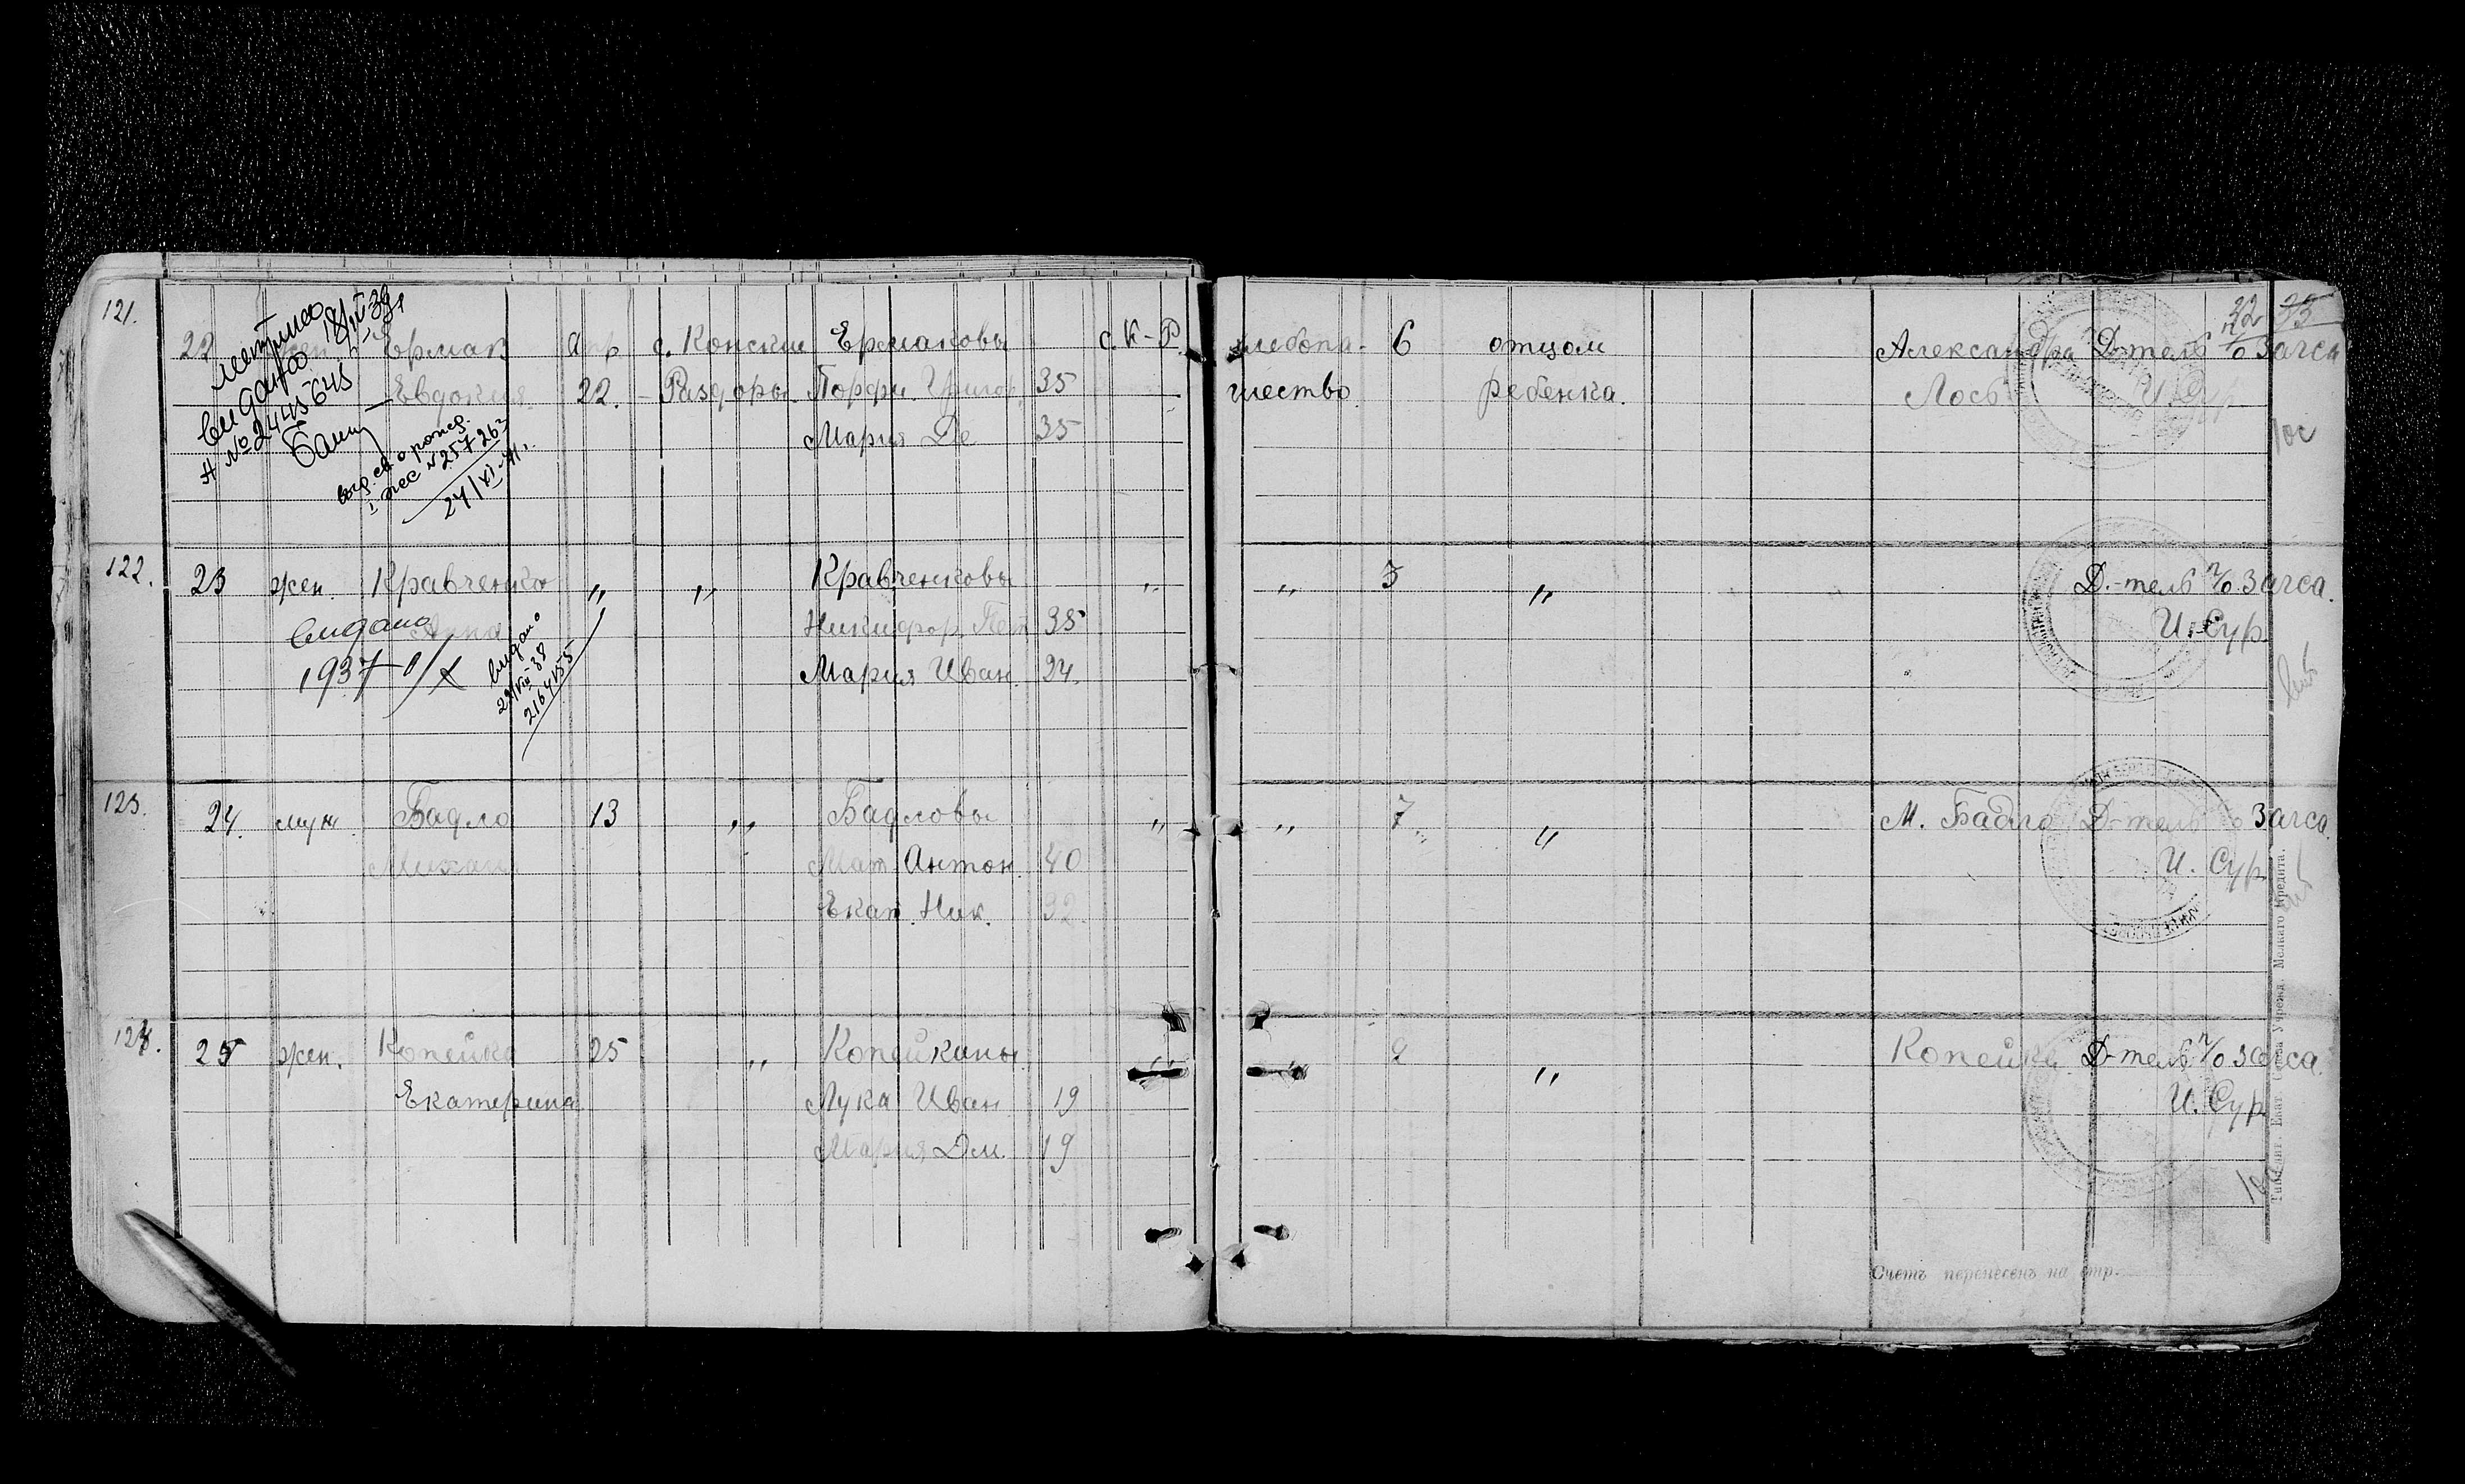 22 23
121.
22 жен Ермак Апр. с. Конские Ермаковы с. К-Р. хлебопа- 6 отцом Александра Д-тель п/о Загса
Евдокия 22. Раздоры Порфи. Григор. 35 шество ребенка. Лось И. Сур
Мария 35
метрика
видано 18/IV 39
Н № 2445645
выд. св. о рожд.
№ 257263
24/VI-41.
122.
23 жен. Кравченко „ „ Кравченковы „ „ 3 „ Д.-тель п/о. Загса.
Анна Никифор. Пет 35 И. Сур
Мария Иван. 24.
видано
1937
видано
38
2164155
123.
24. муж. Бадло 13 „ Бадловы „ „ 7 „ М. Бадло Д-тель Загса.
Михаил Мат. Антон. 40 И. Сур
Екат. Ник. 32.
124.
25 жен. Копейка 25 „ Копейкины „ „ 2 „ Копейка Д-тель п/о Загса.
Екатерина Лука Иван 19 И. Сур
Мария Дм. 19
Счетъ перенесенъ на стр.
Учрежд. Мелкаго Кредита.